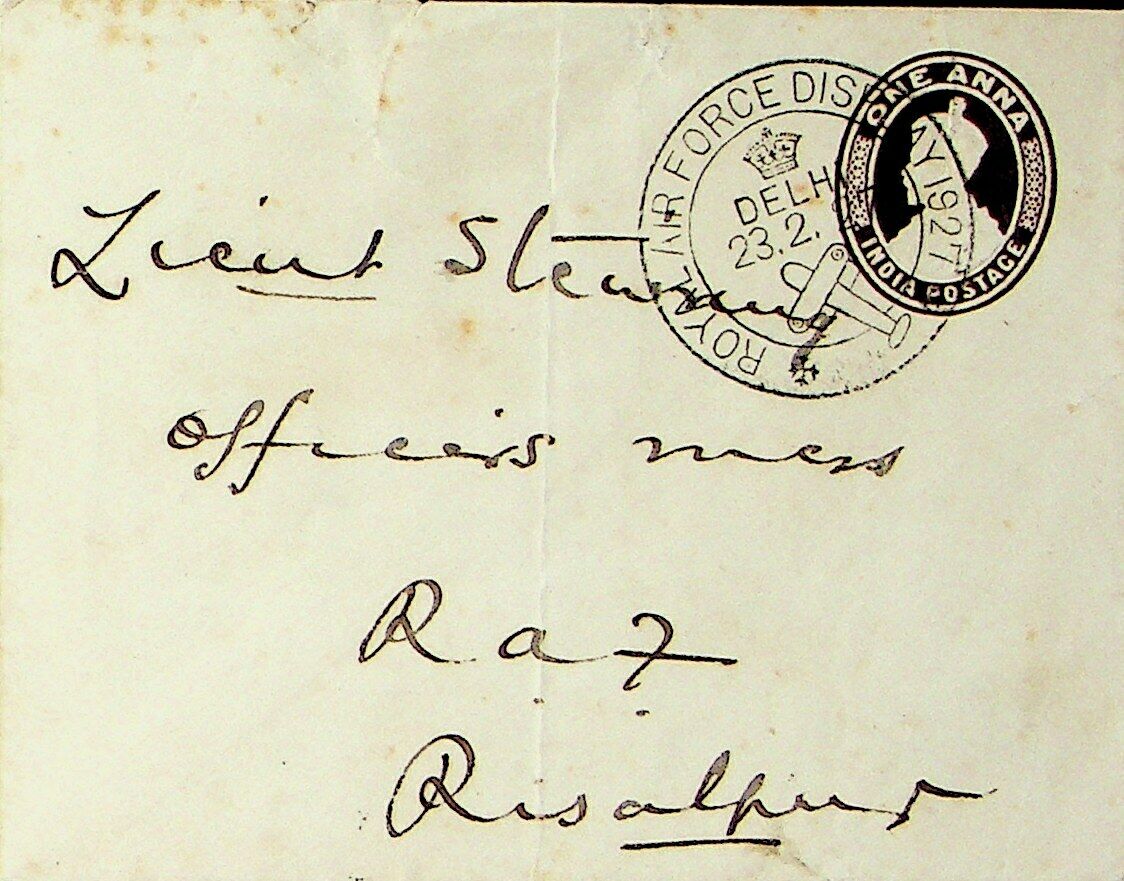 ROYAL AIR FORCE DISPLAY 1927
DELHI
23.2.
ONE ANNA
INDIA POSTAGE
Lieut
Officers mess
R a F
Risalpur